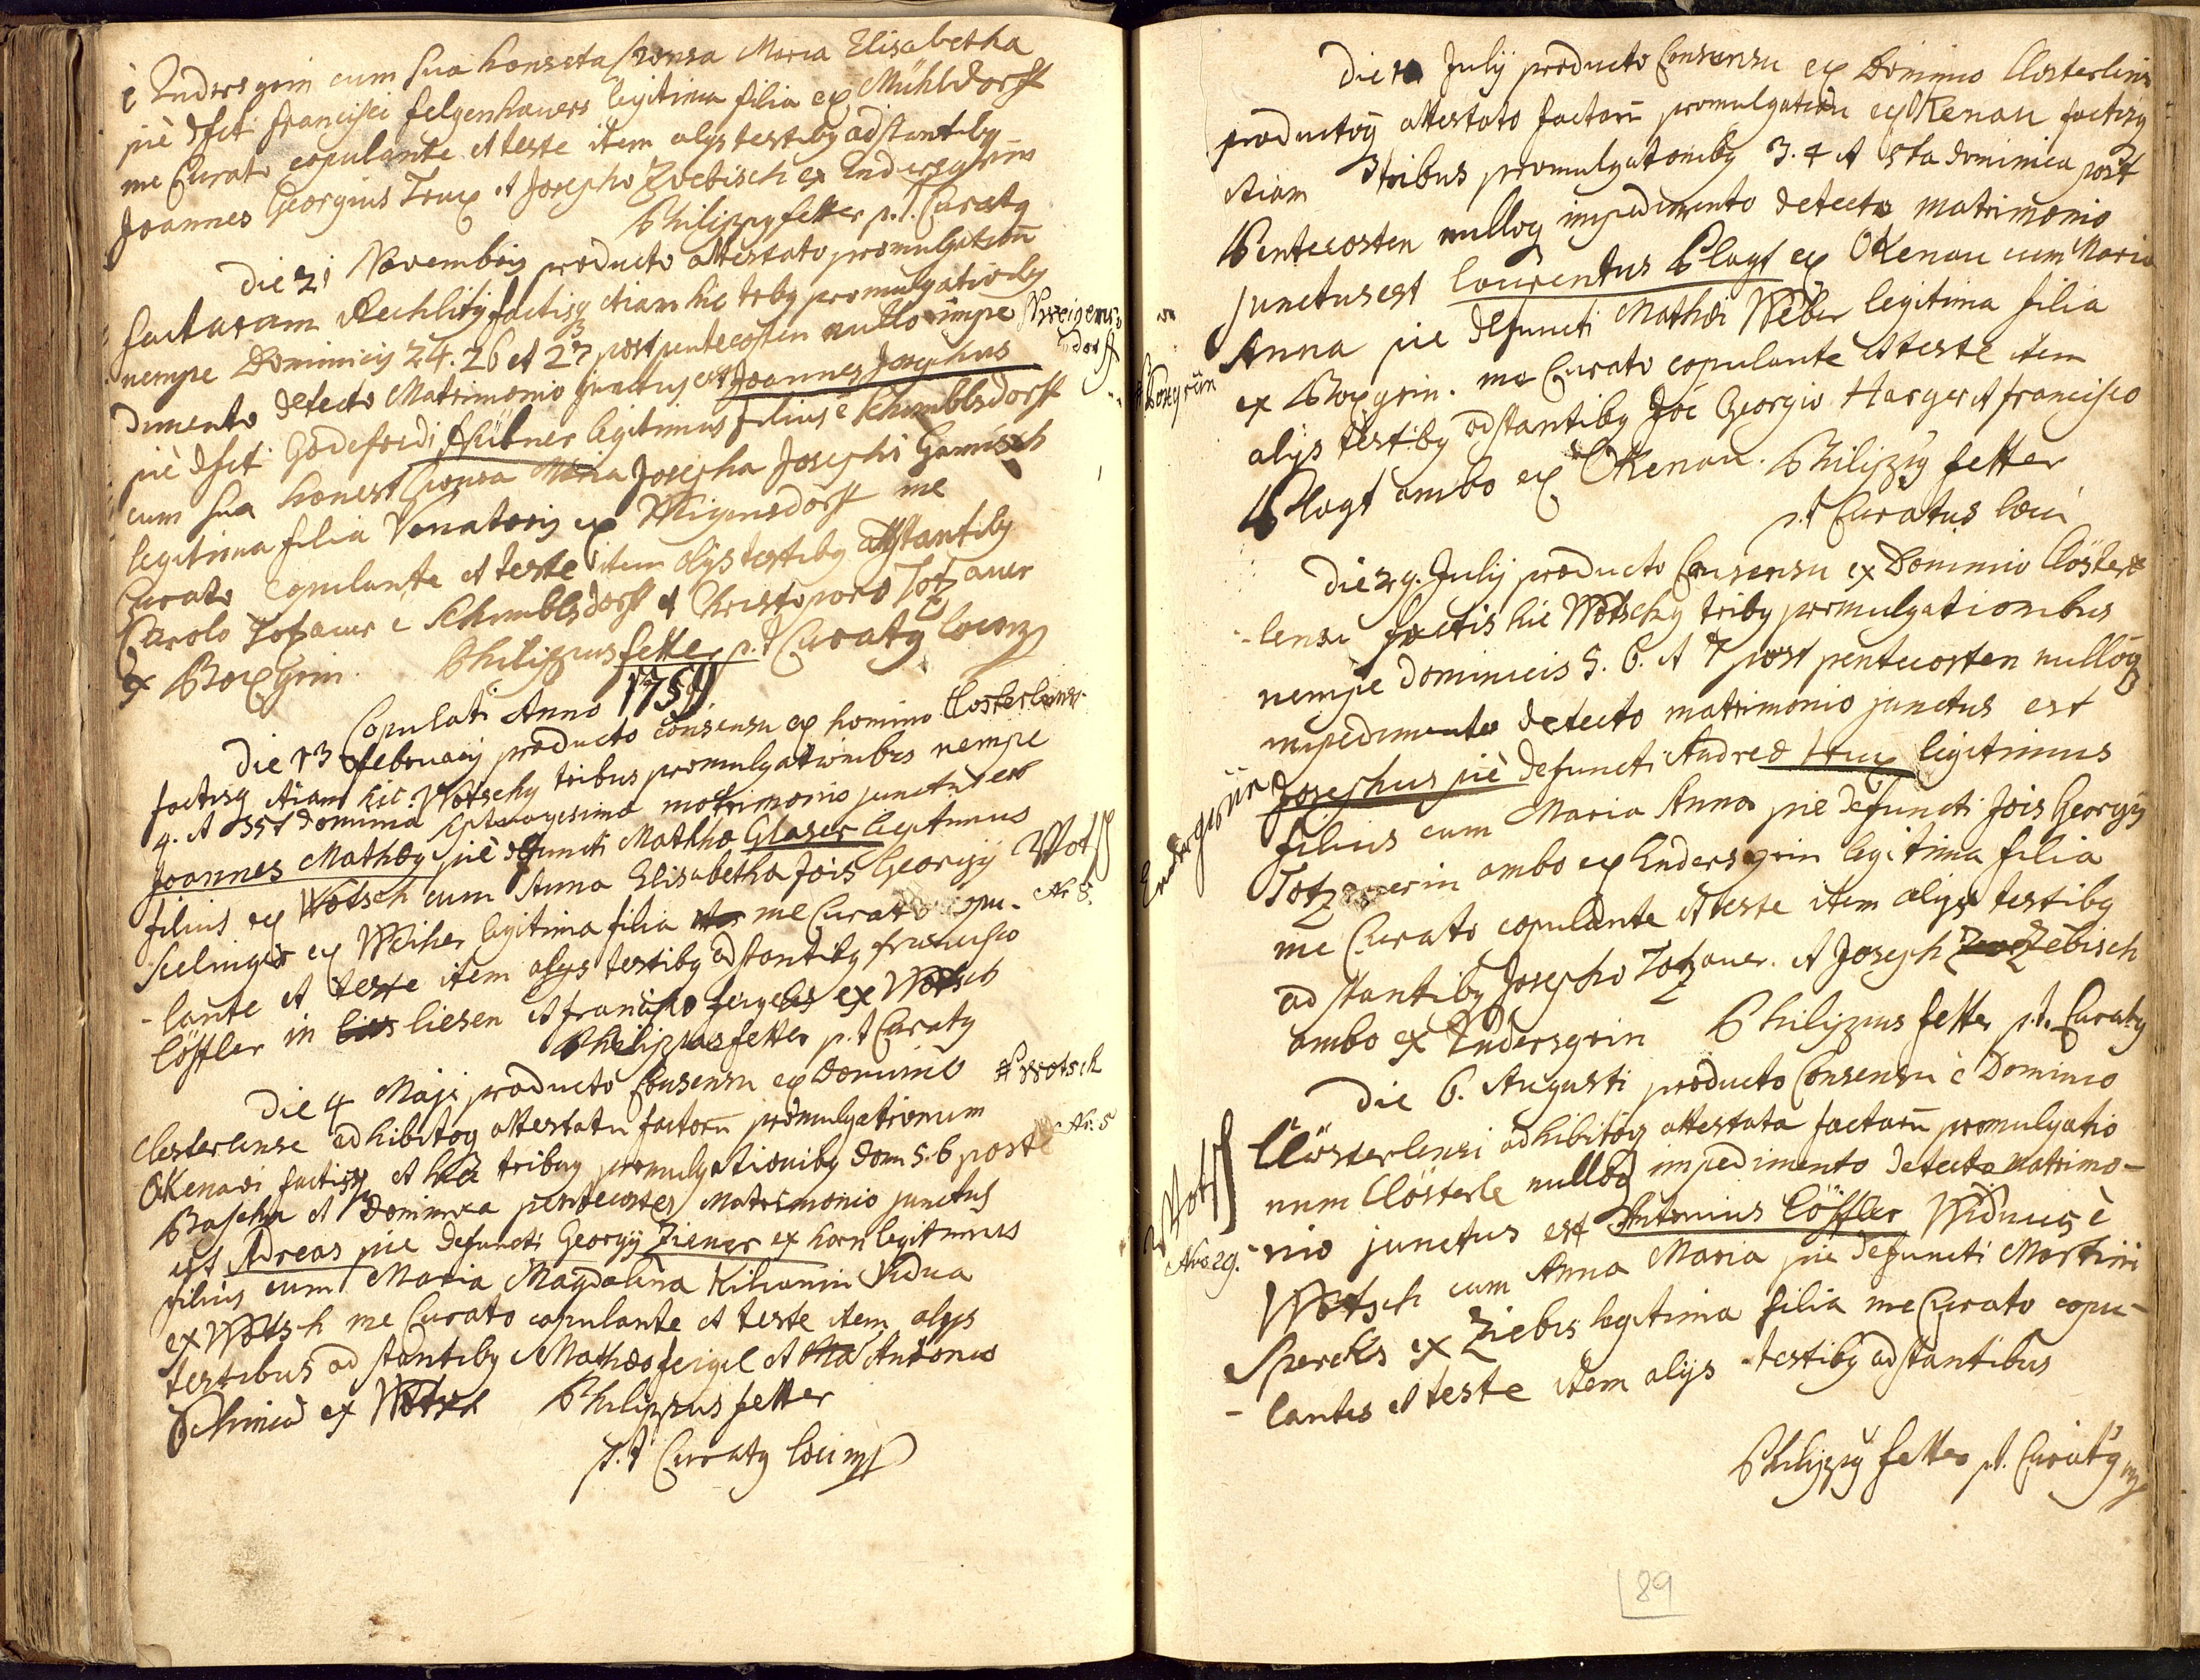 è Endersgrin cum sua honesta sponsa Maria Elisabetha
piè dfcti francisci felgenhauers legitima filia ex Mühldorff
me Curato copulante et teste item alys testiby adstantiby
Joannes Georgius Trux et Josepho Zvebisch ex Endersgrin
Philippy fetter p.t. Curaty
Die 21 Novembris producto attestato promulgation
factaram Rechlitz factisq etiam hic triby promulgationiby
nempe Dominicis 24. 26 et 27 post pentecosten nullo impe
Weigens
dorff
dimento detecto Matrimonio junctus est Joannes Josephus
piè dfcti Godefridi Hübner legitimus filius è Schmiblsdorff
cum sua honest sponsa Maria Josepha Josephi Gamisch
legitima filia Venatoris ex Weigensdorff me
Curato copulante et teste item alys testiby adstantiby
Carolo Totzauer è Schmiblsdorff et Christoporo Totzauer
ex Boxgrin. Philippus fetter p.t Curaty loci mp
Copulati Anno 1759
Die 13 february producto consensu ex homino Closterlensi
factisq etiam hic Wotschy tribus promulgationibus nempe
4. et 5st dominica septuagesima matrimonio junctus est
Joannes Mathæy piè defuncti Mathæ Glaser legitimus
Wotsch
filius ex Wotsch cum Anna Elisabetha Jois Georgy
Nr 8.
Seelinger ex Weiher legitima filia me Curato copu-
-lante et teste item alys testiby adstantiby francisco
Löffler in liesen et francisco feigels ex Wotsch
Philippus fetter p.t Curaty
Die 4 Maji producto Consensu ex Dominio
# Wotsch
Closterlense adhibitoq attestatu factoru promulgationum
Nr. 5
Okenavi factisq et hic tribus promulgationiby Dom 5. 6 post
Pascha et Dominica pentecostes Matrimonio junctus
est Adreas pie defuncti Georgy Ziener ex horn legitimus
filius cum Maria Magdalena Kilianin Vidua
ex Wotsch me Curato copulante et teste item alys
testibus adstantiby Mathæo feigel et Antonio
Schmied ex Wotsch Philippus fetter
p.t Curaty loci mp
Die July producto Consensu ex Dominio Closterlensi
productoq attestato factoru promulgationu ex Okenau factisq
etiam tribus promulgationiby 3. 4 et 5ta dominica post
Pentecosten nulloq impedimento detecto matrimonio
junctus est Laurentus Plagt ex Okenau cum Maria
Anna pie defuncti Mathæi Weber legitima filia
Boxgrün
ex Boxgrin. me Curato copulante et teste item
alys testiby adstantiby Joe Georgio Harger et francisco
Plagt ambo ex Okenau. Philippy fetter
p.t Curatus loci
Die 29. July producto Consensu ex Dominio Clöster
-lensi factis hic Wotschy triby promulgationibus
nempe dominicis 5. 6. et 7 post pentecosten nulloq
impedimento detecto matrimonio junctus est
Endersgrün
Josephus piè defuncti Andreæ Trux legitimus
filius cum Maria Anna pie defuncti Jois Georgy
Totzauerin ambo ex Endersgrin legitima filia
me Curato copulante et teste item alys testiby
adstantiby Josepho Totzauer. et Joseph Zebisch
ambo ex Endersgrin Philippus fetter p.t. Curaty
Die 6. Augusti producto Consensu è Dominio
Clösterlensi adhibitoq attestata factaru promulgatio
num Clösterle nulloq impedimento detecto Matrimo-
Wotsch
Nro 29.
-nio junctus est Antonius Löffler Widuus è
Wotsch cum Anna Maria pie defuncti Martini
Spereks ex Ziebis legitima filia me Curato copu-
-lantes et teste item alys testiby adstantibus
Philippy fetter p.t. Curaty mp
89